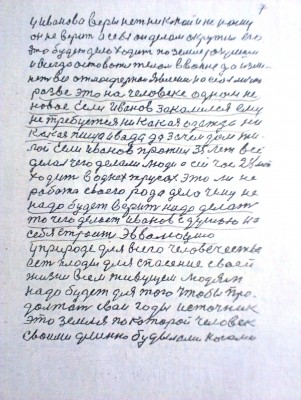 7
у иванова веры нет никакой и не кому
он не верит а себя он делом окрутил его
это будет дело ходит по земле разутым
и всегда остается телом в
разве это на человеке одном не
новое Если Иванов закалился ему
не требуется никакая одежда ни
какая пища и вода да зачем дом жи
лой если иванов прожил 35 лет всё
делал чего делали люди а сей час 2
ходит в одних трусах это ли не
работа своего рода дело чему не
надо будет верить надо делать
то чего делает иванов с душою на
себя строит Эволюцию
у природе для всего человечества
есть плоды для спасение своей
жизни всем живущем людям
надо будет для того чтобы про
должат свои годы источник
это земля по которой человек
своими длинно будылами ногами